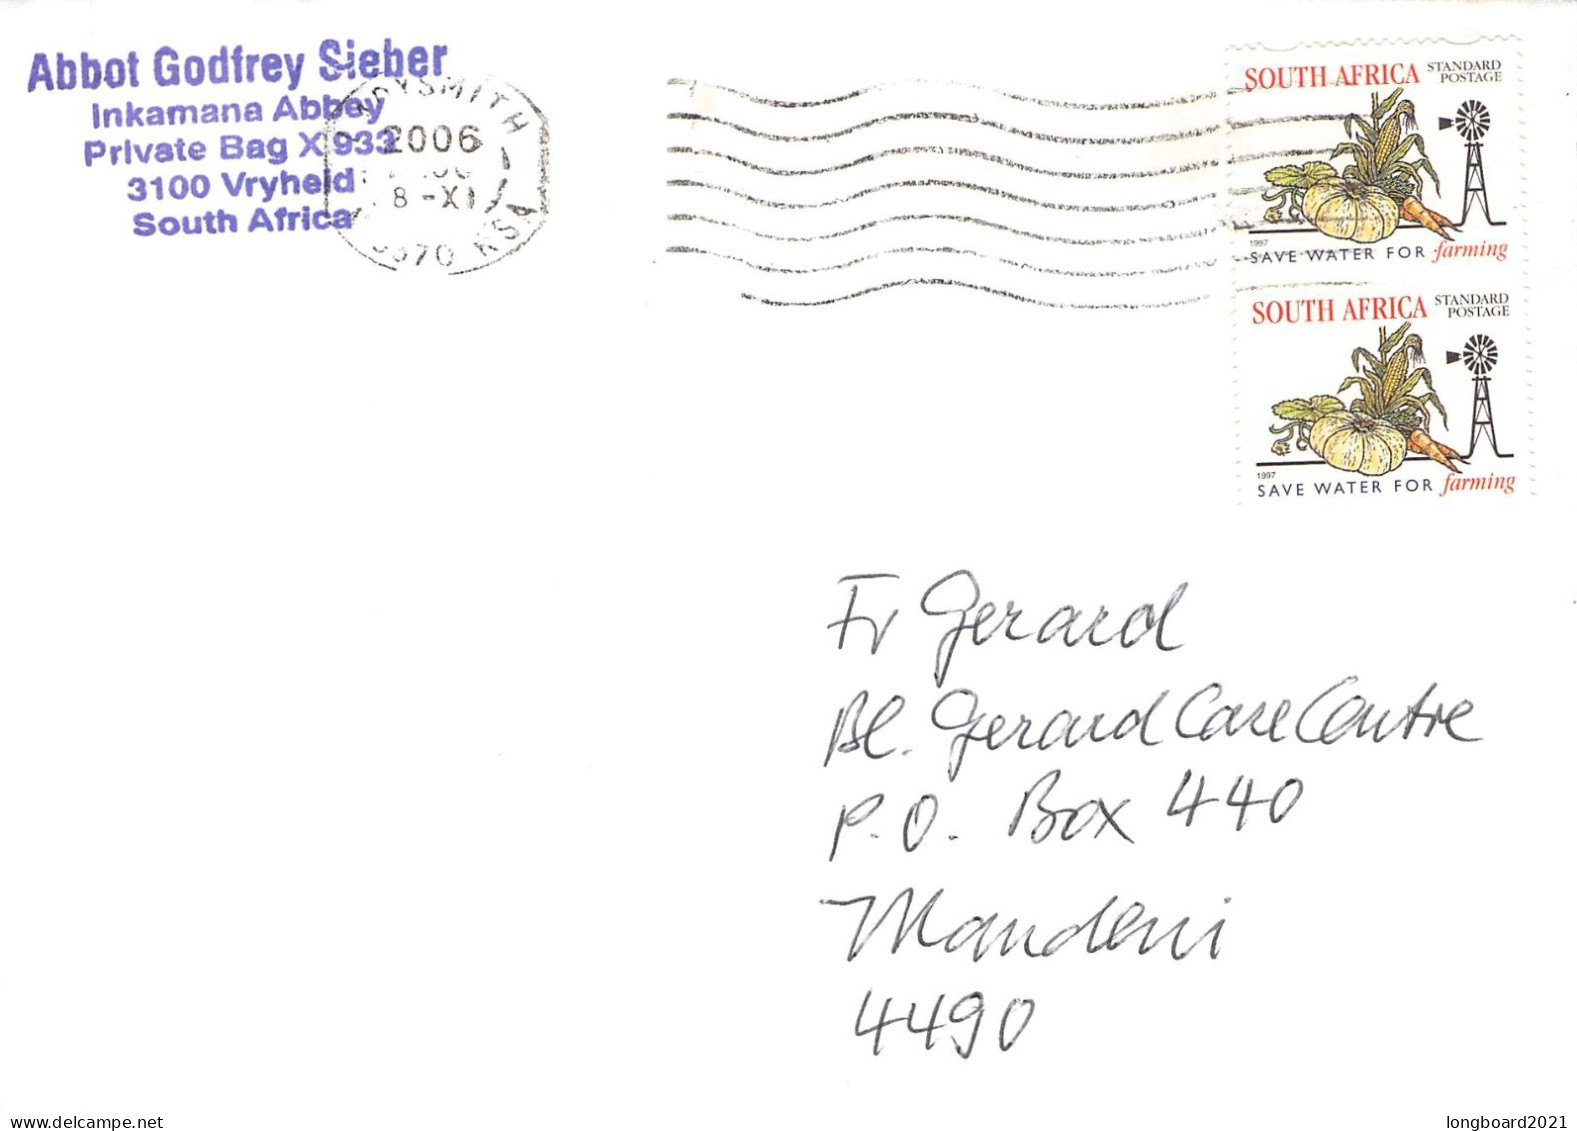 Abbot Godfrey Sieber
Inkamana Abbey
Private Bag X 933
3100 Vryheid
South Africa
2006
8 -XI
SOUTH AFRICA STANDARD
POSTAGE
1997
SAVE WATER FOR farming
SOUTH AFRICA STANDARD
POSTAGE
1997
SAVE WATER FOR farming
Fr Gerard
Bl. Gerard Care Centre
P.O. Box 440
Mandeni
4490
longboard2021